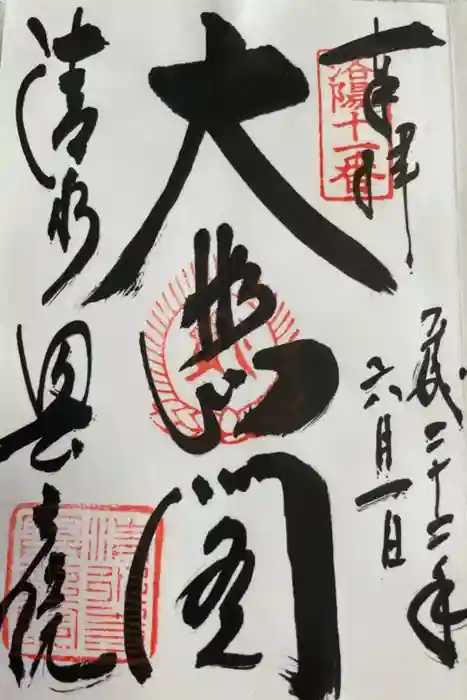 奉拝
洛陽十一番
平成二十二年
六月一日
大悲閣
清水奥之院